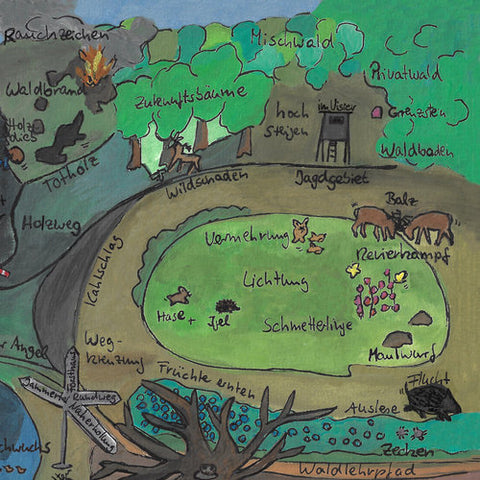 Rauchzeichen
Mischwald
Waldbrand
Zukunftsbäume
Privatwald
hoch
steigen
im Visier
Grenzstein
Holz
dieb
Waldboden
Totholz
Wildschaden
Jagdgebiet
Balz
Holzweg
Vermehrung
Revierkampf
Kahlschlag
Lichtung
Hase + Igel
Schmetterlinge
Maulwurf
Angel
Weg-
kreuzung
Früchte ernten
Flucht
Rundweg
Naherholung
Auslese
Zecken
Waldlehrpfad